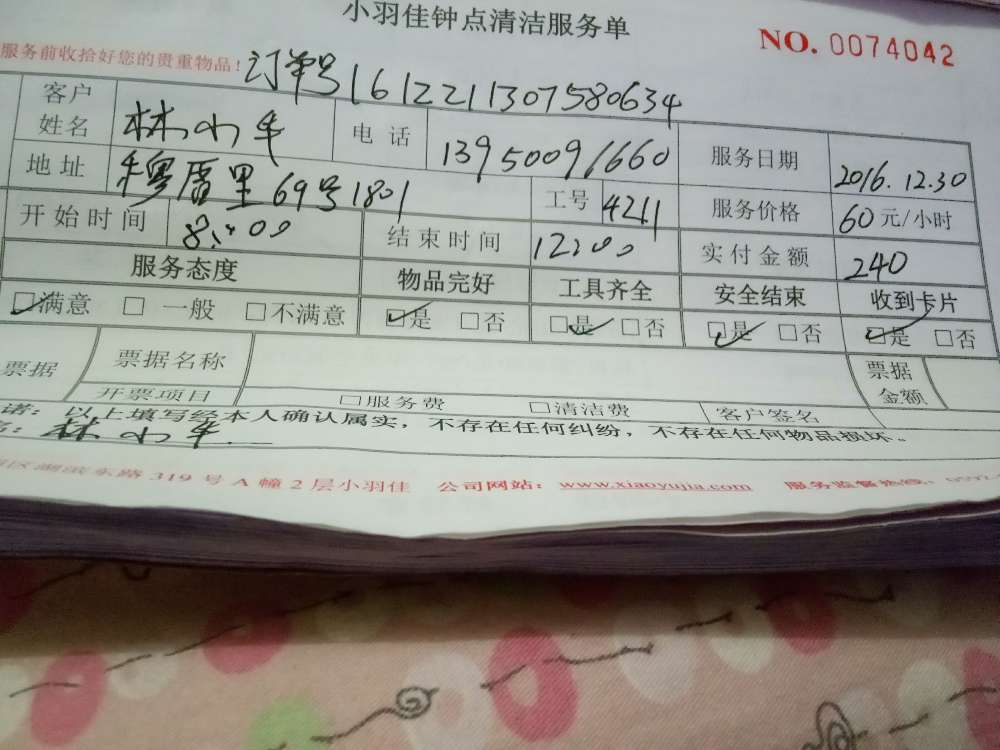 小羽佳钟点清洁服务单
NO. 0074042
服务前收拾好您的贵重物品! 订单号161221130758063４
客户姓名 林小年 电话 13950091660 服务日期 2016.12.30
地址 穆厝里69号1801 工号 4211 服务价格 60元/小时
开始时间 8:00 结束时间 12:00 实付金额 240
服务态度 物品完好 工具齐全 安全结束 收到卡片
☑满意 □一般 □不满意 ☑是 □否 ☑是 □否 ☑是 □否 ☑是 □否
票据 票据名称 票据金额
开票项目 □服务费 □清洁费 客户签名
诺：以上填写经本人确认属实，不存在任何纠纷，不存在任何物品损坏。
名：林小年
区湖滨东路319号A幢2层小羽佳 公司网站：www.xiaoyujia.com 服务监督热线：0592-